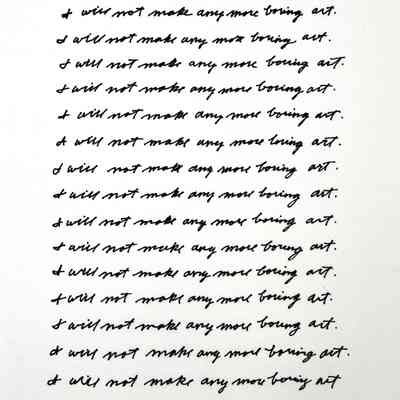 I will not make any more boring art.
I will not make any more boring art.
I will not make any more boring art.
I will not make any more boring art.
I will not make any more boring art.
I will not make any more boring art.
I will not make any more boring art.
I will not make any more boring art.
I will not make any more boring art.
I will not make any more boring art.
I will not make any more boring art.
I will not make any more boring art.
I will not make any more boring art.
I will not make any more boring art.
I will not make any more boring art